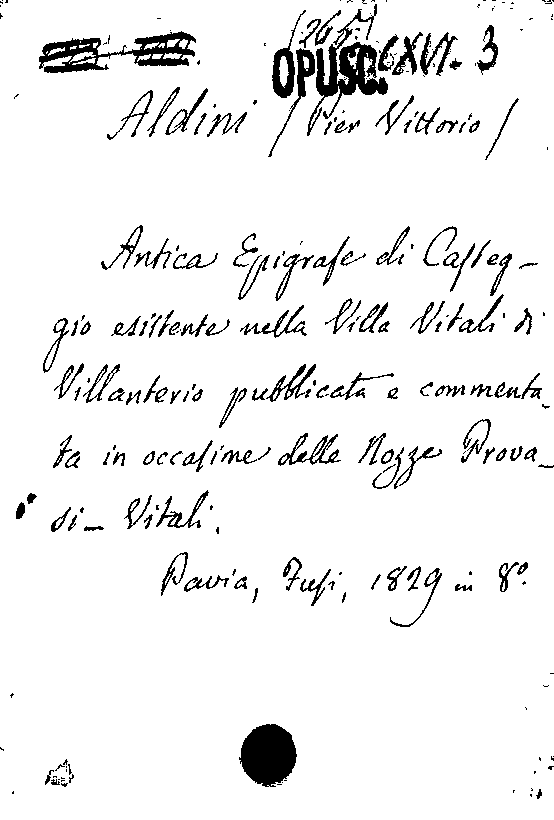 OPUSC. CXVI. 3
Aldini (Pier Vittorio)
Antica Epigrafe di Casteg-
gio esistente nella Villa Vitali di
Villanterio pubblicata e commenta-
ta in occasione delle Nozze Prova-
si - Vitali.
Pavia, Fusi, 1829 in 8°.